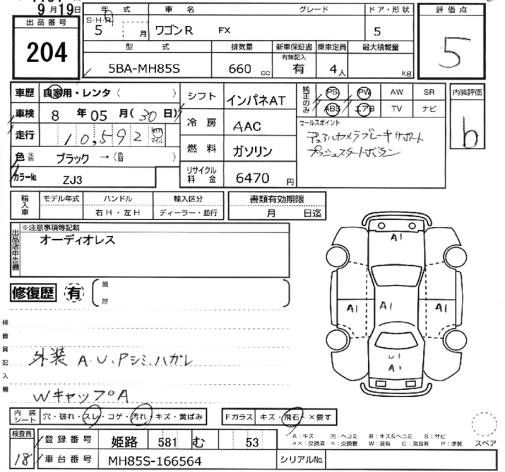 9月19日
出品番号
204
年 式
車 名
グレード
ドア・形状
S・H・R
5 月
ワゴンR FX
5
評価点
5
型 式
排気量
新車保証書
乗車定員
最大積載量
5BA-MH85S
660 cc
有無記入
有
4人
kg
車歴 自家用・レンタ ( )
車検 8 年 05 月 (30日)
走行 10,592 km
色 ブラック →( )
カラーNo ZJ3
シフト インパネAT
冷房 AAC
燃料 ガソリン
リサイクル料金 6470 円
純正のみ
PS PW AW SR
ABS エアB TV ナビ
セールスポイント
プッシュスタートボタン
内装評価
b
輸入車
モデル年式 ハンドル 輸入区分
右H・左H ディーラー・並行
書類有効期限
月 日迄
出品店申告欄
※注意事項等記載
オーディオレス
修復歴 有
箇歴
検査員記入欄
外装 A.U.Pシミ.ハガレ
WキャップA
A1
A1
A1
A1
U1
A1
内装シート 穴・破れ・スレ・コゲ・汚れ・キズ・黄ばみ
Fガラス キズ・飛石・×要す
スペア
検査員
18
登録番号 姫路 581 む 53
車台番号 MH85S-166564
シリアルNo.